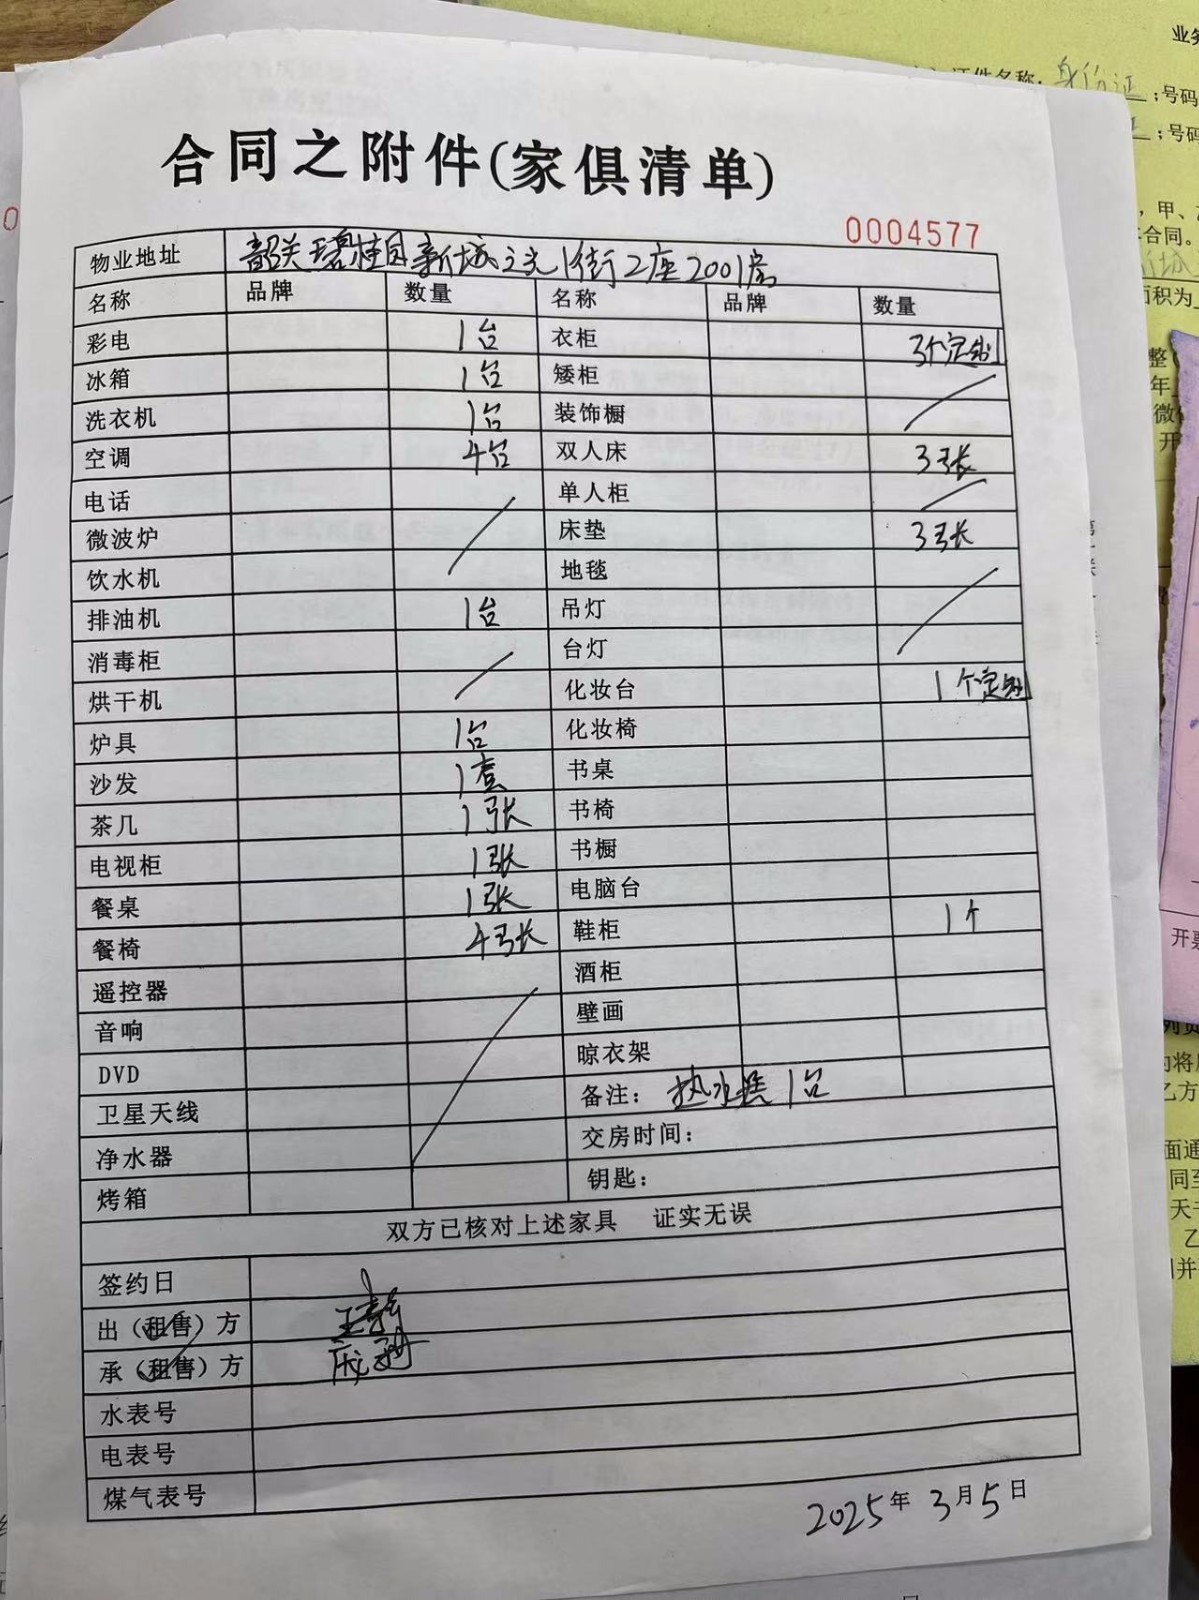 业务
证件名称：身份证；号码
；号码
合同之附件(家俱清单)
0004577
物业地址 韶关碧桂园新城之光1街2座2001房
名称 品牌 数量 名称 品牌 数量
彩电 1台 衣柜 3个定制
冰箱 1台 矮柜
洗衣机 1台 装饰橱
空调 4台 双人床 3张
电话 单人柜
微波炉 床垫 3张
饮水机 地毯
排油机 1台 吊灯
消毒柜 台灯
烘干机 化妆台 1个定制
炉具 1台 化妆椅
沙发 1套 书桌
茶几 1张 书椅
电视柜 1张 书橱
餐桌 1张 电脑台
餐椅 4张 鞋柜 1个
遥控器 酒柜
音响 壁画
DVD 晾衣架
卫星天线 备注：热水器1台
净水器 交房时间：
烤箱 钥匙：
双方已核对上述家具 证实无误
签约日
出（租售）方
承（租售）方
水表号
电表号
煤气表号
2025年3月5日